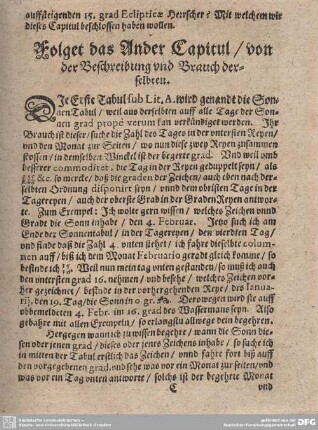 auffsteigenden 15. grad Eclipticæ Herrscher? Mit welchem wir
dieses Capitul beschlossen haben wollen.
Folget das Ander Capitul / von
der Beschreibung vnd Brauch der-
selben.
DIe Erste Tabul sub Lit. A. wird genandt die Son-
nen Tabul / weil aus derselben auff alle Tage der Son-
nen grad propè verum kan verkündiget werden. Ihr
Brauch ist dieser / suche die Zahl des Tages in der vntersten Reyen /
vnd den Monat zur Seiten / wo nun diese zwey Reyen zusammen
stossen / in demselben Winckel ist der begerte grad. Vnd weil vmb
besserer commoditet. die Tag in der Reyen geduppelt seyn / als
&c. so mercke / daß die graden der Zeichen / auch eben nach der-
selbten Ordnung disponirt seyn / vnnd dem obristen Tage in der
Tagereyen / auch der oberste Grad in der Graden Reyen antwor-
te. Zum Exempel: Ich wolte gern wissen / welches Zeichen vnnd
Gradt die Sonn inhabe / den 4. Februar. Jetzo such ich am
Ende der Sonnentabul / in der Tagereyen / den vierdten Tag /
vnd finde daß die Zahl 4. vnten stehet / ich fahre dieselbte colum-
nen auff / biß ich dem Monat Februario gerade gleich komme / so
befinde ich Weil nun mein tag vnten gestanden / so muß ich auch
den vntersten grad 16. nehmen / vnd besehe / welches Zeichen vor-
her gezeichnet / befinde in der vorhergehenden Reye / des Ianua-
rij, den 19. Tag / die Sonn in 0 gr. Derowegen wird sie auff
obbemeldeten 4. Febr. im 16. grad des Wassermans seyn. Also
gebahre mit allen Exempeln / so erlangstu allwege dein begehren.
Hergegen wann ich zu wissen begehre / wann die Sonn die-
sen oder jenen grad / dieses oder jenes Zeichens inhabe / so suche ich
in mitten der Tabul erstlich das Zeichen / vnnd fahre fort biß auff
den vorgegebenen grad, vnd sehe was vor ein Monat zur seiten / vnd
was vor ein Tag vnten antworte / solchs ist der begehrte Monat
C vnd